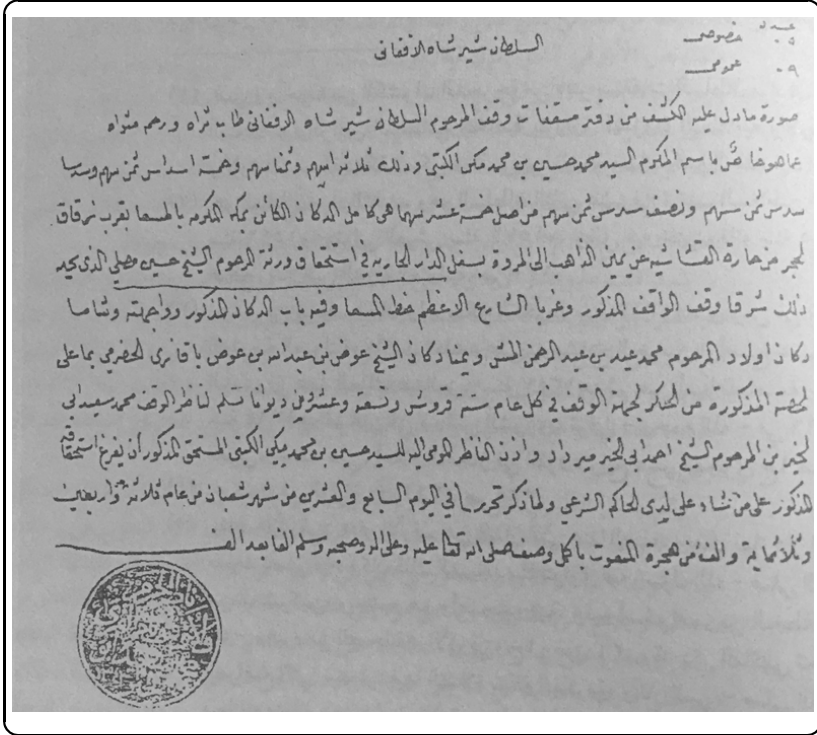 السلطان شير شاه الافغانى
عدد خصوصى
٩٠ عمومى
صورة مادل عليه الكشف من دفتر مسقفات وقف المرحوم السلطان شير شاه الافغانى طاب ثراه ورحم مثواه
عما هو خاص باسم المكرم السيد محمد حسين بن محمد مكى الكتبى وذلك ثلاثه اسهم وثمنا سهم وخمسة اسداس ثمن سهم وسدسا
سدس ثمن سهم ونصف سدس ثمن سهم من اصل خمسة عشر سهما هى كامل الدكان الكائن بمكه المكرمه بالمسعا بقرب زقاق
الحجر من حارة القشاشيه عن يمين الذاهب الى المروة بسفل الدار الجاريه في استحقاق ورثة المرحوم الشيخ حسين مصلي الذى يحده
ذلك شرقا وقف الواقف المذكور وغربا الشارع الاعظم خط المسعا وفيه باب الدكان المذكور وواجهته وشاما
دكان اولاد المرحوم محمد عيد بن عبد الرحمن ويمنا دكان الشيخ عوض بن عبد الله بن عوض الحضرمي بما على
الحصة المذكورة من الحكر لجهة الوقف في كل عام ستة قروش وتسعة وعشرون ديوانا سلم لناظر الوقف محمد سعيد ابى
الخير بن المرحوم الشيخ احمد ابى الخير ميرداد واذن الناظر المومى اليه للسيد حسين بن محمد مكي الكتبى المستحق المذكور أن يفرغ استحقاقه
المذكور على من شاء على لدى الحاكم الشرعي ولما ذكر تحرر في اليوم السابع والعشرين من شهر شعبان من عام ثلاثة واربعين
وثلاثماية والف من هجرة المنعوت باكمل وصف صلى الله تعالى عليه وعلى اله وصحبه وسلم الفا بعد الف